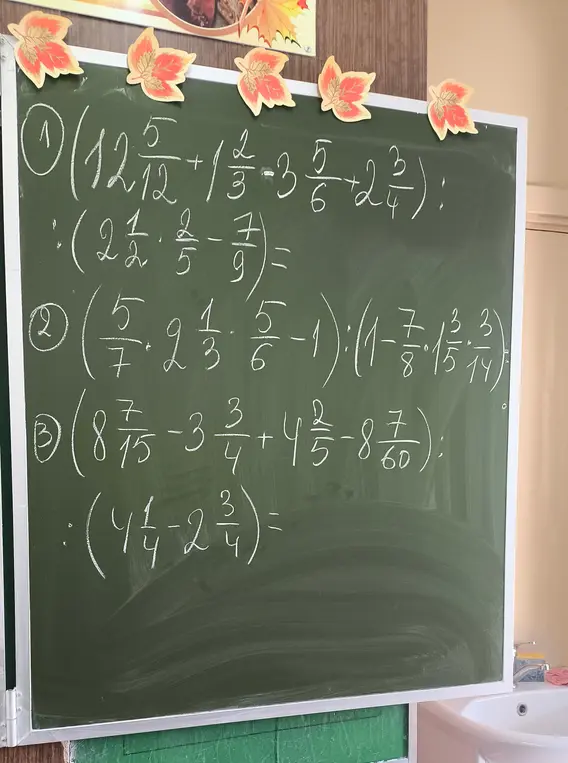 ① (12 5/12 + 1 2/3 - 3 5/6 + 2 3/4) :
: (2 1/2 · 2/5 - 7/9) =
② (5/7 · 2 1/3 · 5/6 - 1) : (1 - 7/8 · 1 3/5 · 3/14) =
③ (8 7/15 - 3 3/4 + 4 2/5 - 8 7/60) :
: (4 1/4 - 2 3/4) =